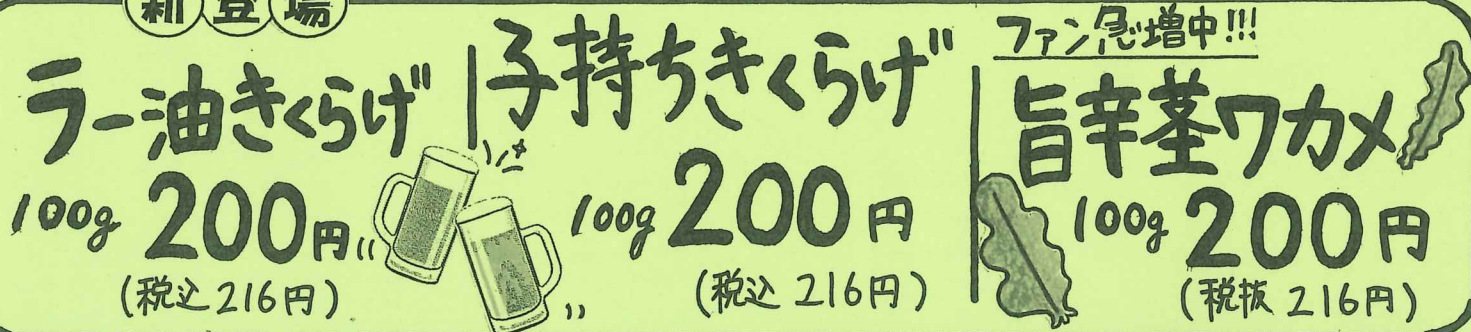 新登場
ラー油きくらげ
100g 200円
(税込216円)
子持ちきくらげ
100g 200円
(税込 216円)
ファン急増中!!!
旨辛茎ワカメ
100g 200円
(税抜 216円)